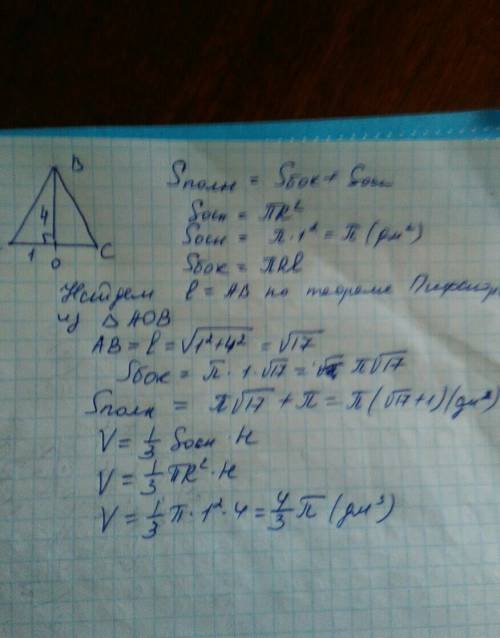 B
4
1
O
C
Sполн = Sбок + Sосн
Sосн = πR²
Sосн = π · 1² = π (дм²)
Sбок = πRl
Найдем l = AB по теореме Пифагора
из △ AOB
AB = l = √1²+4² = √17
Sбок = π · 1 · √17 = π√17
Sполн = π√17 + π = π(√17 + 1) (дм²)
V = 1/3 Sосн · H
V = 1/3 πR² · H
V = 1/3 π · 1² · 4 = 4/3 π (дм³)